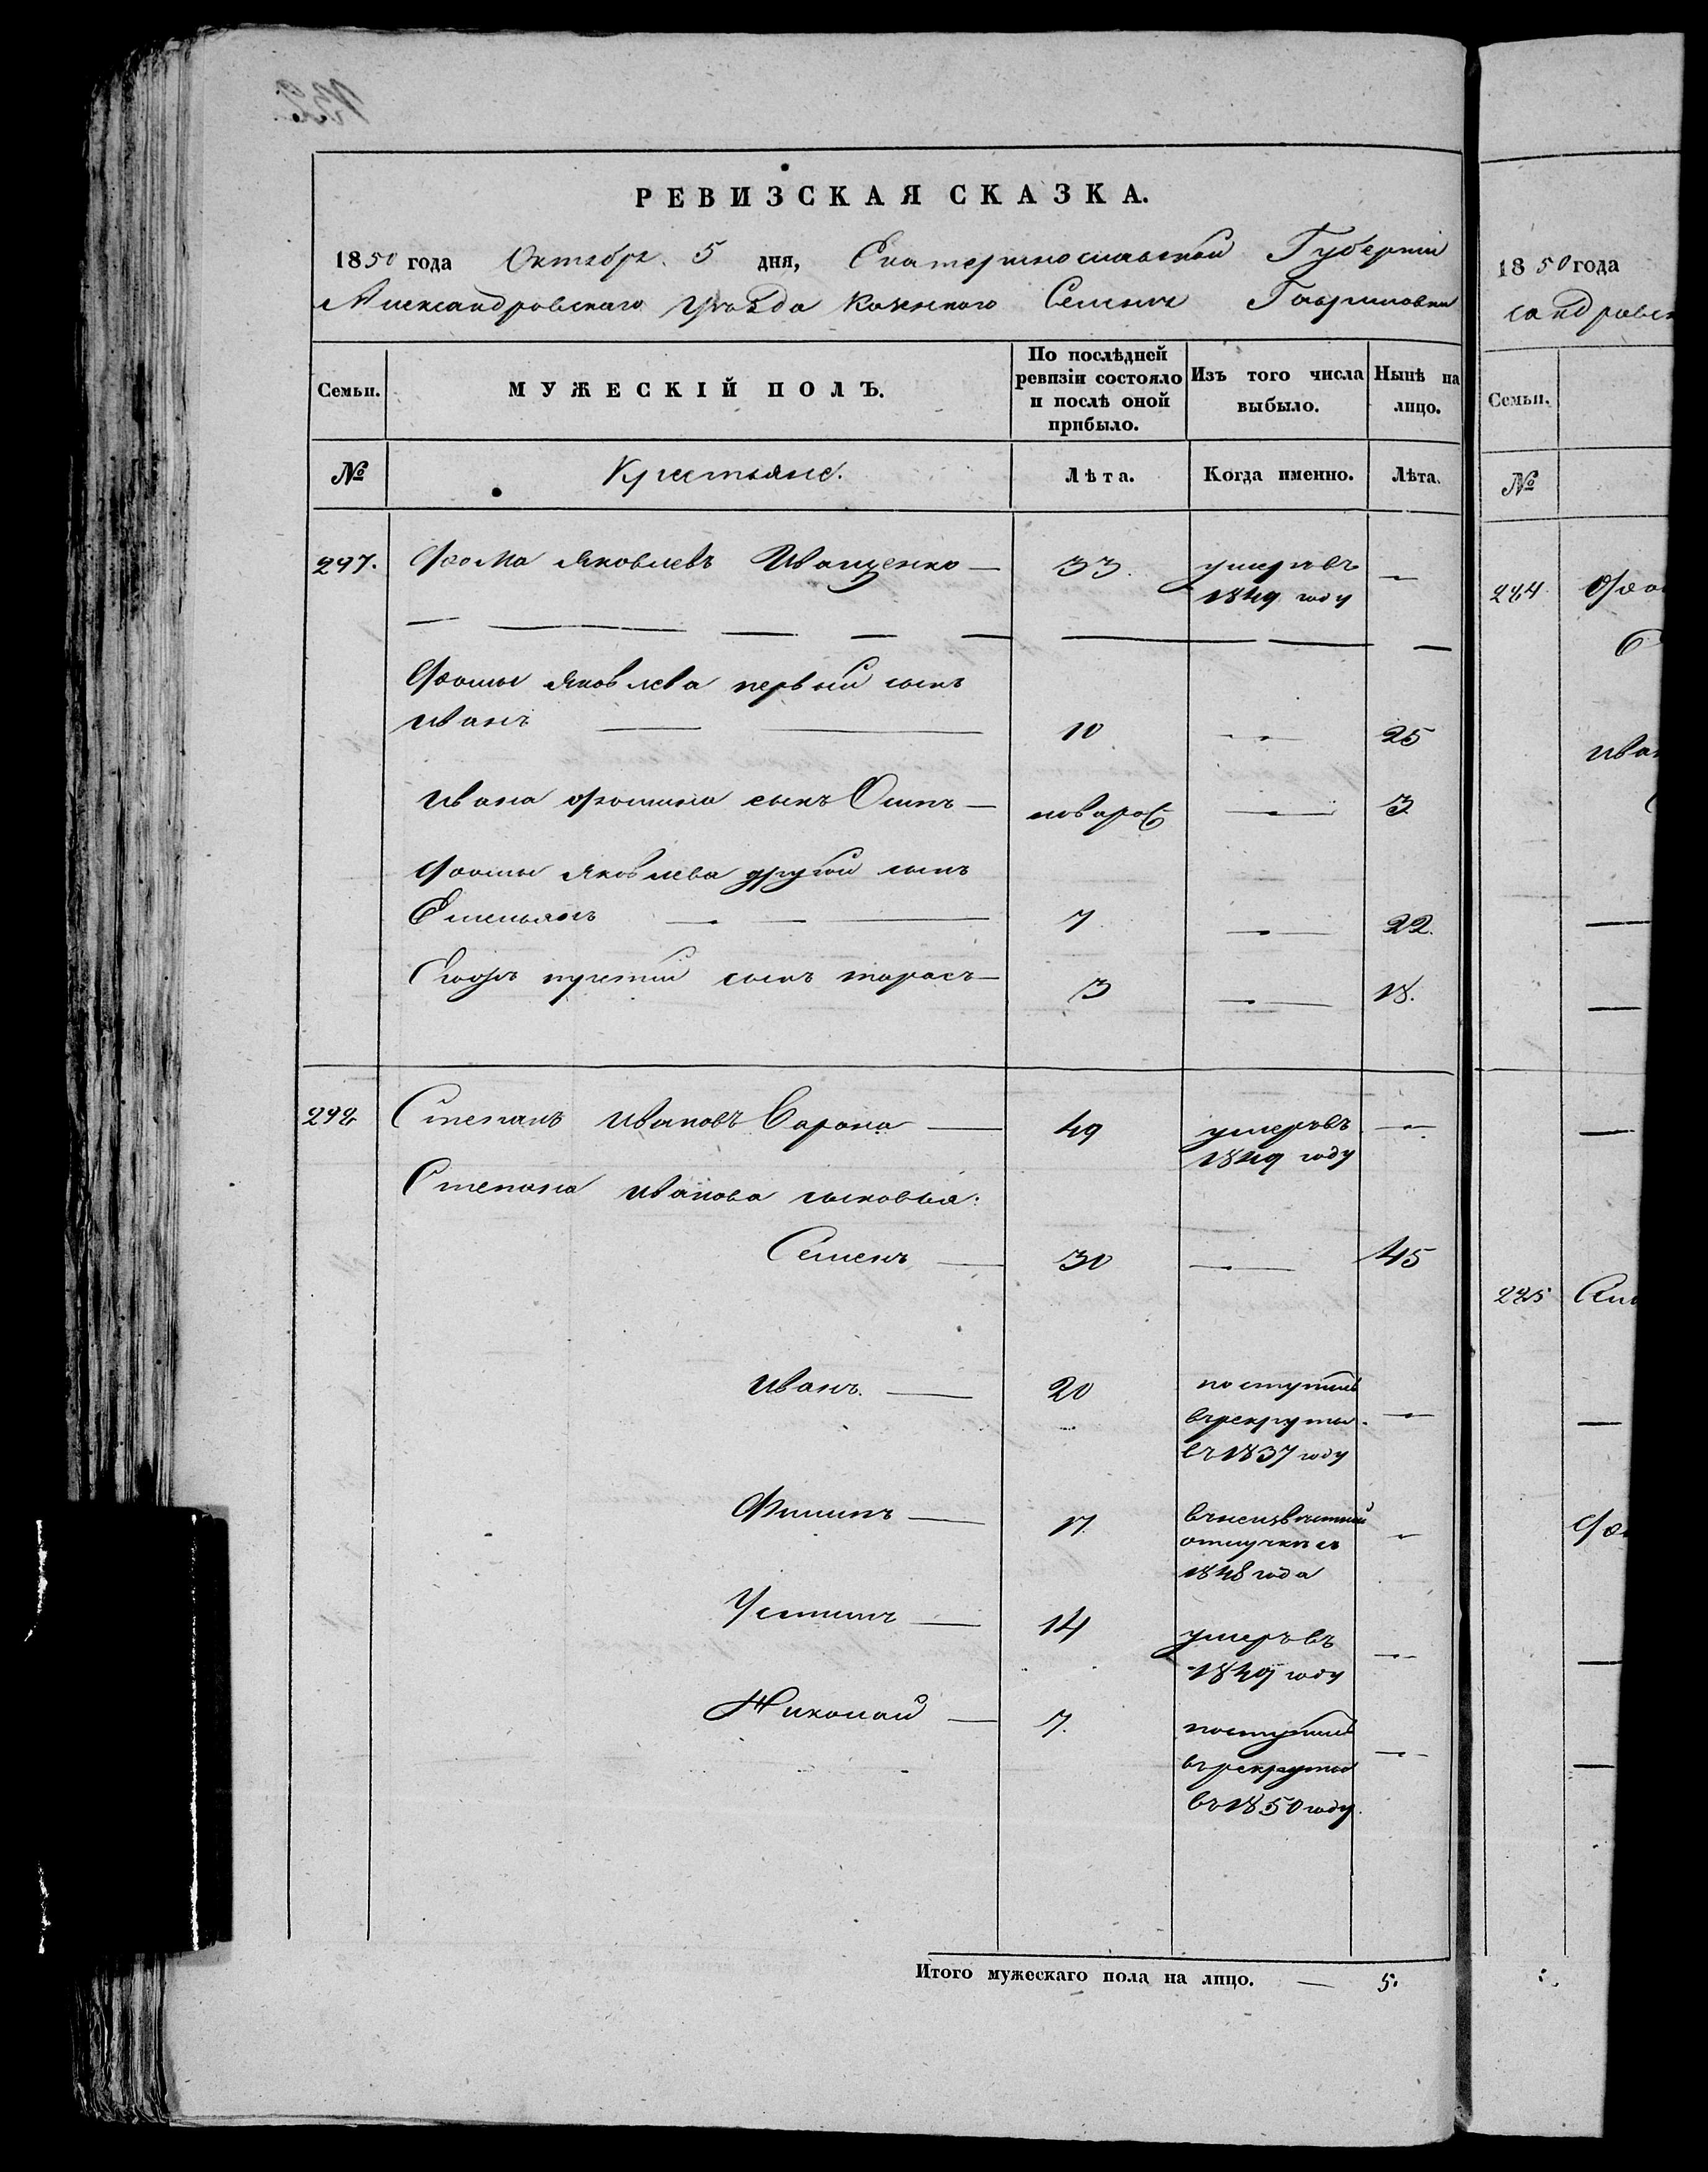 РЕВИЗСКАЯ СКАЗКА.
1850 года Октября 5 дня, Екатеринославской Губерніи
Александровскаго Уѣзда Казеннаго Селенія Гавриловки
Семьи. МУЖЕСКІЙ ПОЛЪ. По послѣдней ревизіи состояло и послѣ оной прибыло. Изъ того числа выбыло. Нынѣ на лицо.
№ Крестьяне. Лѣта. Когда именно. Лѣта.
297. Фома Яковлевъ Иващенко — 33. умеръ въ 1849 году —
Фомы Яковлева первый сынъ
Иванъ — 10 — 25
Ивана Фомина сынъ Осипъ — новорож — 3.
Фомы Яковлева другой сынъ
Емельянъ — 7. — 22.
Егожъ третій сынъ Тарасъ — 3 — 18.
292 Степанъ Ивановъ — 49 умеръ въ 1849 году —
Степана Иванова сыновья:
Семенъ — 30 — 45
Иванъ. — 20 поступилъ
въ рекруты. —
въ 1837 году
Филипъ — 17. въ неизвѣстной
отлучкѣ съ —
1848 года
Устинъ — 14 умеръ въ
1849 году —
Николай — 7. поступилъ
въ рекруты —
въ 1850 году.
Итого мужескаго пола на лицо. — 5.
1850 года
сандровск
Семьи.
№
284. Фо
Ива
285